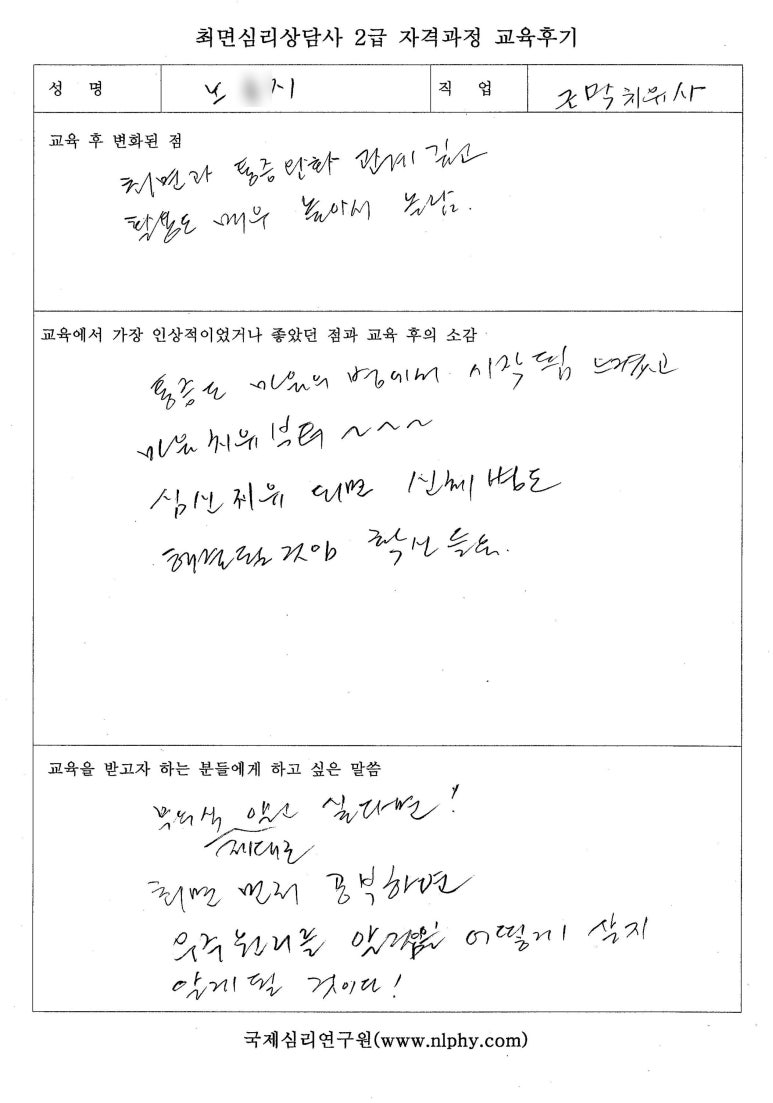 최면심리상담사 2급 자격과정 교육후기
성 명 노 지 직 업 조막치유사
교육 후 변화된 점
최면과 통증완화 관계 깊고
활용도 매우 높아서 놀람.
교육에서 가장 인상적이었거나 좋았던 점과 교육 후의 소감
통증도 마음의 병에서 시작됨 느꼈고
마음치유부터 ~~~
심신치유 되면 신체 병도
해결됨 것임 확신 들음.
교육을 받고자 하는 분들에게 하고 싶은 말씀
무의식 알고 싶다면!
제대로
최면 먼저 공부하면
우주원리를 어떻게 살지
알게 될 것이다!
국제심리연구원(www.nlphy.com)